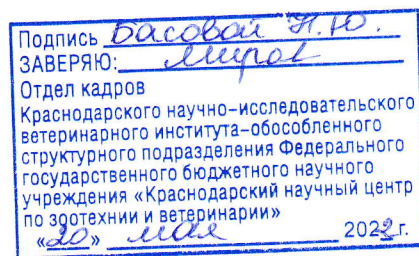 Подпись Басовой Н.Ю.
ЗАВЕРЯЮ:
Отдел кадров
Краснодарского научно–исследовательского
ветеринарного института–обособленного
структурного подразделения Федерального
государственного бюджетного научного
учреждения «Краснодарский научный центр
по зоотехнии и ветеринарии»
«20» мая 2022г.